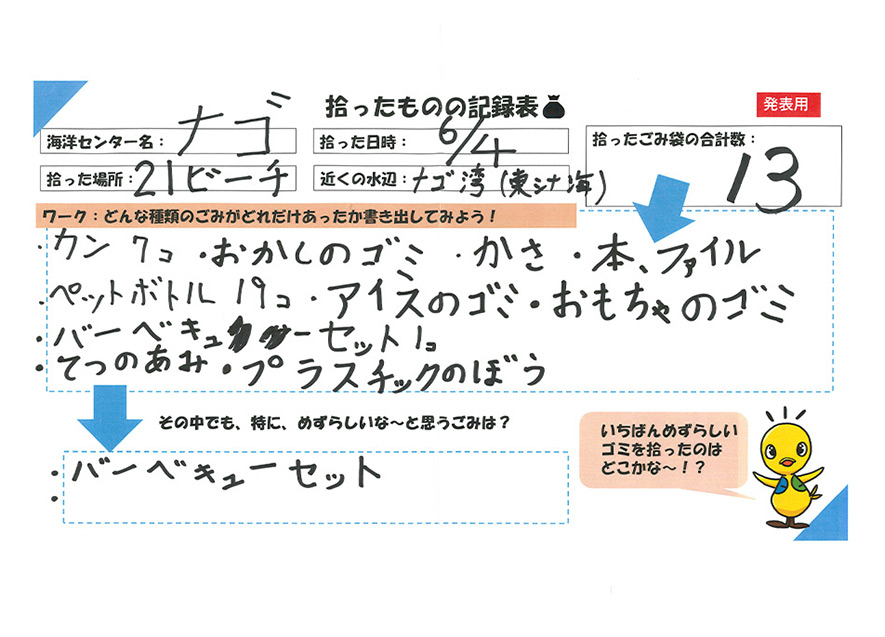 拾ったものの記録表
発表用
海洋センター名：ナゴ
拾った日時：6/4
拾ったごみ袋の合計数：
13
拾った場所：21ビーチ
近くの水辺：ナゴ湾(東シナ海)
ワーク：どんな種類のごみがどれだけあったか書き出してみよう！
・カン 7コ ・おかしのゴミ ・かさ ・本、ファイル
・ペットボトル 19コ ・アイスのゴミ ・おもちゃのゴミ
・バーベキューセット1コ
・てつのあみ ・プラスチックのぼう
その中でも、特に、めずらしいな～と思うごみは？
・バーベキューセット
・
いちばんめずらしい
ゴミを拾ったのは
どこかな～！？